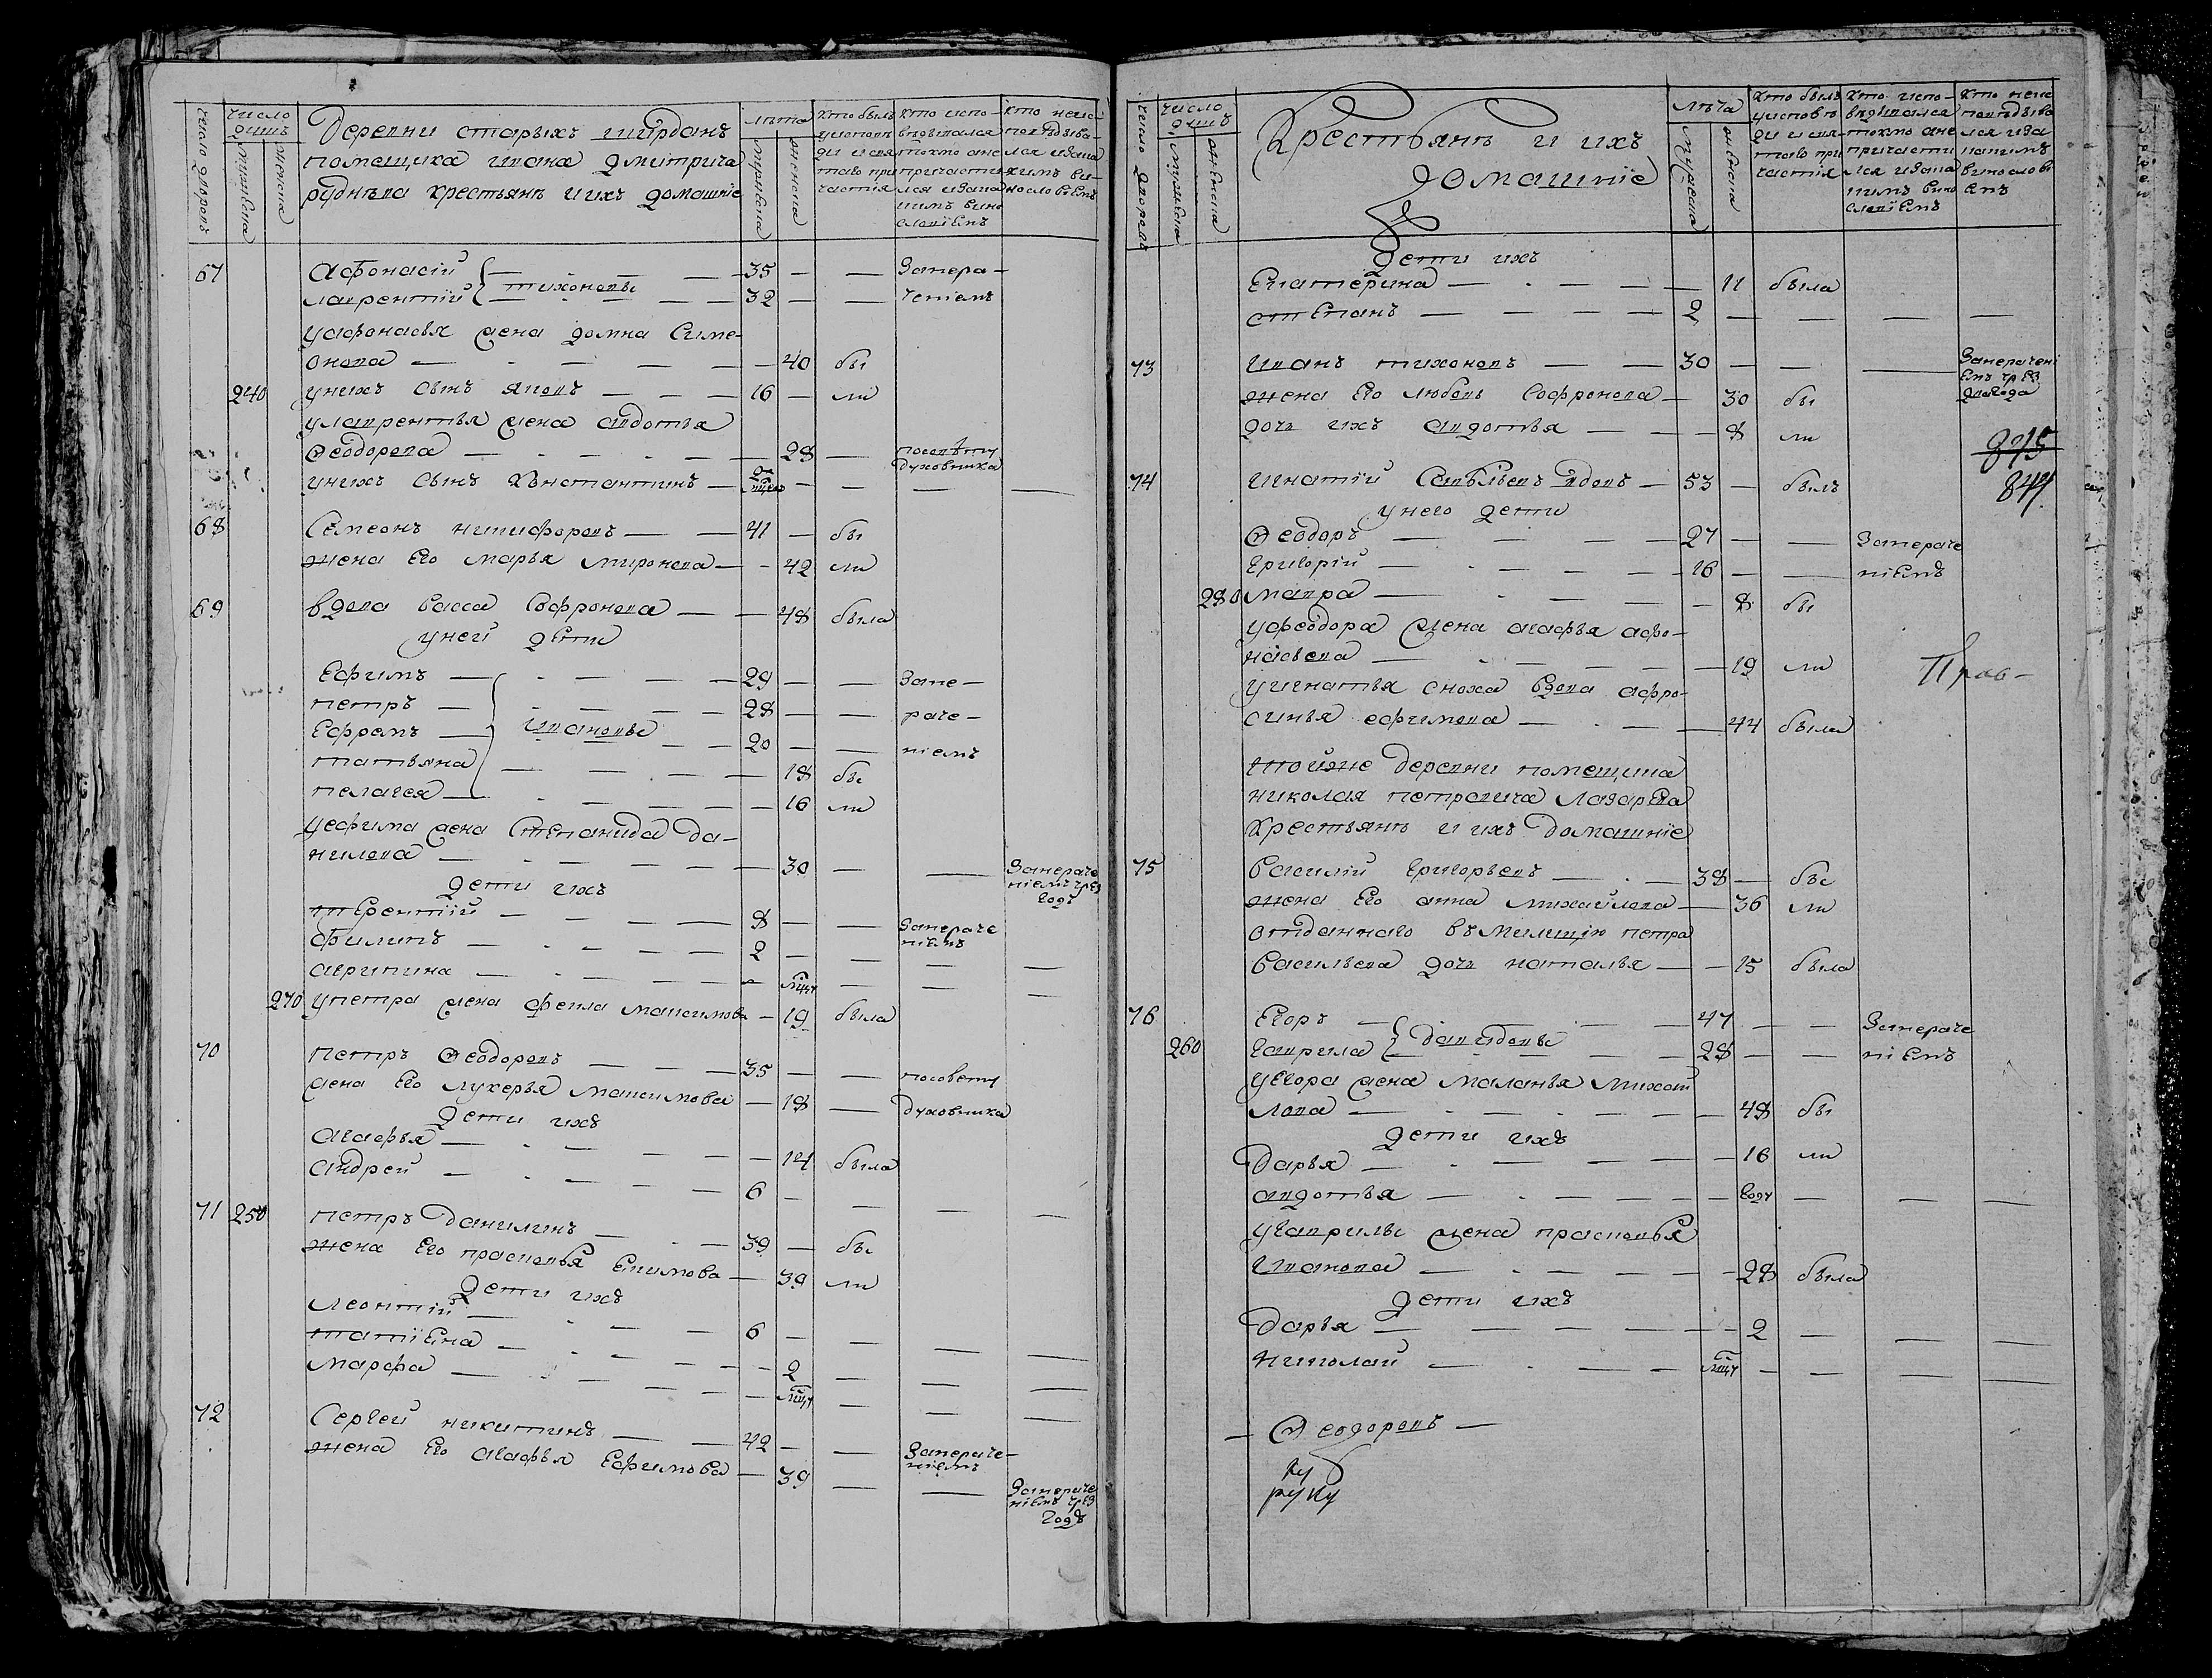 число дворовъ
число душъ
мужеска
женска
Деревни старыхъ шырданъ
помещика ивана дмитрича
руднѣва крестьянъ и ихъ домашние
лѣта
мужеска
женска
Кто былъ
уисповѣ
ди и свя
таго при
частiя
Кто испо
вѣдывался
токмо а не
причасти
лся и зака
кимъ вино
словiемъ
Кто неис
поведыва
лся и зака
кимъ ви
нословiемъ
67 Афонасiй — 35 — — Занера-
лаврентiй тихоновы — 32 — — ченiемъ
у афонасья жена домна Симе-
онова — 40 бы
240 у нихъ сынъ яковъ — 16 — ли
у лаврентья жена авдотья
Ѳеодорова — 28 — посовѣту духовника
у нихъ сынъ Константинъ — — — —
68 Семеонъ никифоровъ — 41 — бы
жена Его марья миронова — 42 ли
69 вдова васса Софронова — 48 была
у ней дети
Ефимъ — 29 — — Зане-
петръ — 28 — — раче-
Ефремъ — ивановы — 20 — — нiемъ
татьяна — 18 бы
пелагея — 16 ли
у ефима жена Степанида Да-
нилова — 30 — — Занераче нiемъ чрез годъ
дети ихъ
терентiй — 8 — — Занераче нiемъ
филипъ — 2 — — — —
агрипина — — — —
270 у петра жена фекла максимова — 19 была
70 петръ Ѳеодоровъ — 35 — — посовету
жена Его лукерья максимова — 18 — духовника
дети ихъ
агафья — 14 была
андрей — 6 — — — —
71 250 петръ Данилинъ — 39 — бы
жена Его прасковья Екимова — 39 ли
дети ихъ
леонтiй — 6 — — — —
татiена — 2 — — —
марфа — — — —
72 Сергей никитинъ — 42 — — Занераче- нiемъ
жена Его агафья Ефимова — 39 — — Занераче нiемъ чрез годъ
число дворовъ
число душъ
мужеска
женска
Крестьянъ и ихъ
домашнiе
лѣта
мужеска
женска
Кто былъ
уисповѣ
ди и свя-
таго при
частiя
Кто испо-
вѣдывался
токмо а не
причасти
лся и зака
кимъ вино
словiемъ
Кто неис
поведыва
лся и за
какимъ
винослові
емъ
Дети ихъ
Екатерина — 11 была
степанъ — 2 — — — —
73 иванъ тихоновъ — 30 — — — Занерачені емъ чрез два года
жена Его любовь Софронова — 30 бы
дочь ихъ авдотья — 8 ли
875
844
74 игнатiй Савѣльевъ вдовъ — 53 — былъ
у него дети
Ѳеодоръ — 27 — — Занераче
григорiй — 16 — — нiемъ
280 мавра — 8 бы
у феодора жена агафья афо-
насьева — 19 ли
Прав-
у игнатья сноха вдова афро-
синья ефимова — 44 была
тойже деревни помещика
николая петровича лазарева
крестьянъ и ихъ домашнiе
75 василiй григорьевъ — 38 — бы
жена Его анна михайлова — 36 ли
отданнаго въ милицiю петра
васильева дочь наталья — 15 была
76 Егоръ — 47 — — Занераче
260 гаврила Давыдовы — 28 — — нiемъ
у Егора жена маланья михай
лова — 48 бы
дети ихъ
Дарья — 16 ли
авдотья — году — — —
у гаврилы жена прасковья
ивановa — 28 была
дети ихъ
Дарья — 2 — — —
николай — — — —
— Ѳеодоровъ —
руку